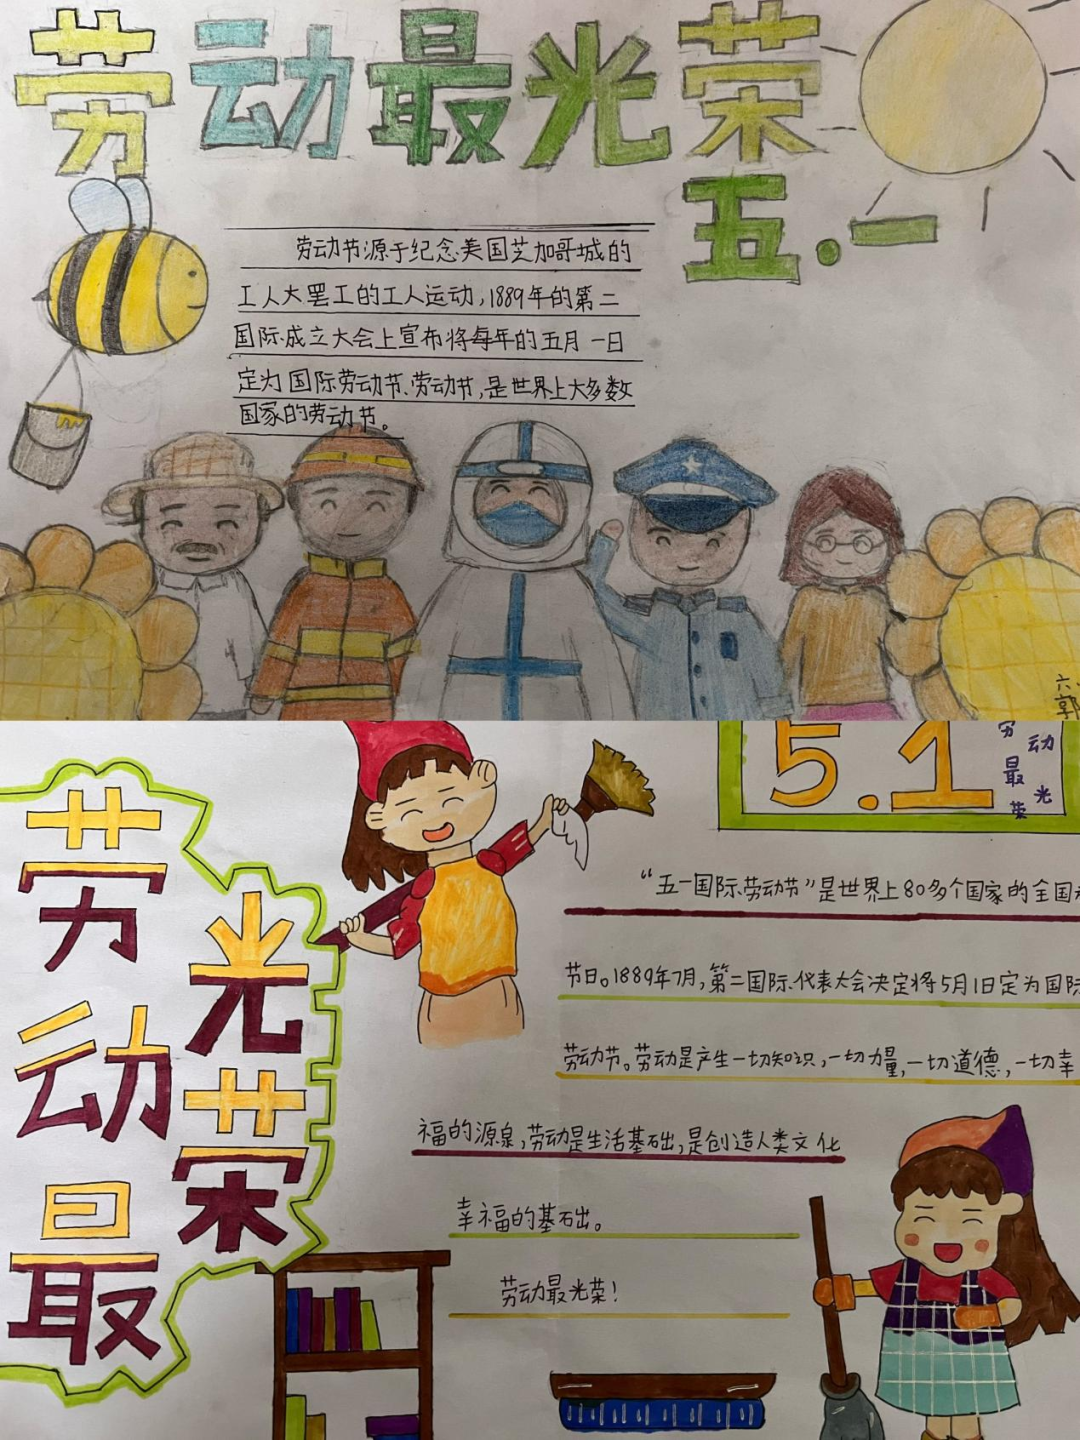 劳动最光荣
五·一
劳动节源于纪念美国芝加哥城的
工人大罢工的工人运动,1889年的第二
国际成立大会上宣布将每年的五月一日
定为国际劳动节、劳动节,是世界上大多数
国家的劳动节。
六
郭
5.1
劳动
最光
荣
劳动最
光荣
“五一国际劳动节”是世界上80多个国家的全国
节日。1889年7月,第二国际代表大会决定将5月1日定为国际
劳动节。劳动是产生一切知识,一切力量,一切道德,一切幸
福的源泉,劳动是生活基础,是创造人类文化
幸福的基础。
劳动最光荣!